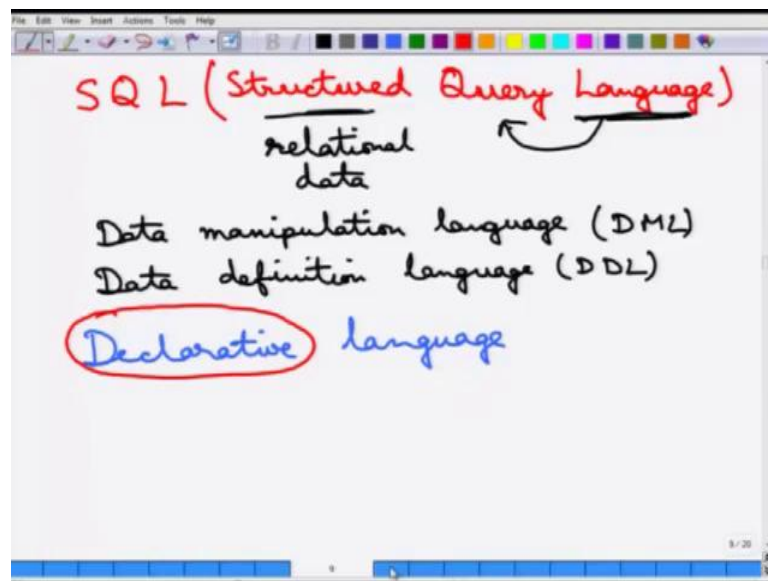 File Edit View Insert Actions Tools Help
SQL (Structured Query Language)
relational
data
Data manipulation language (DML)
Data definition language (DDL)
Declarative language
9/20
9